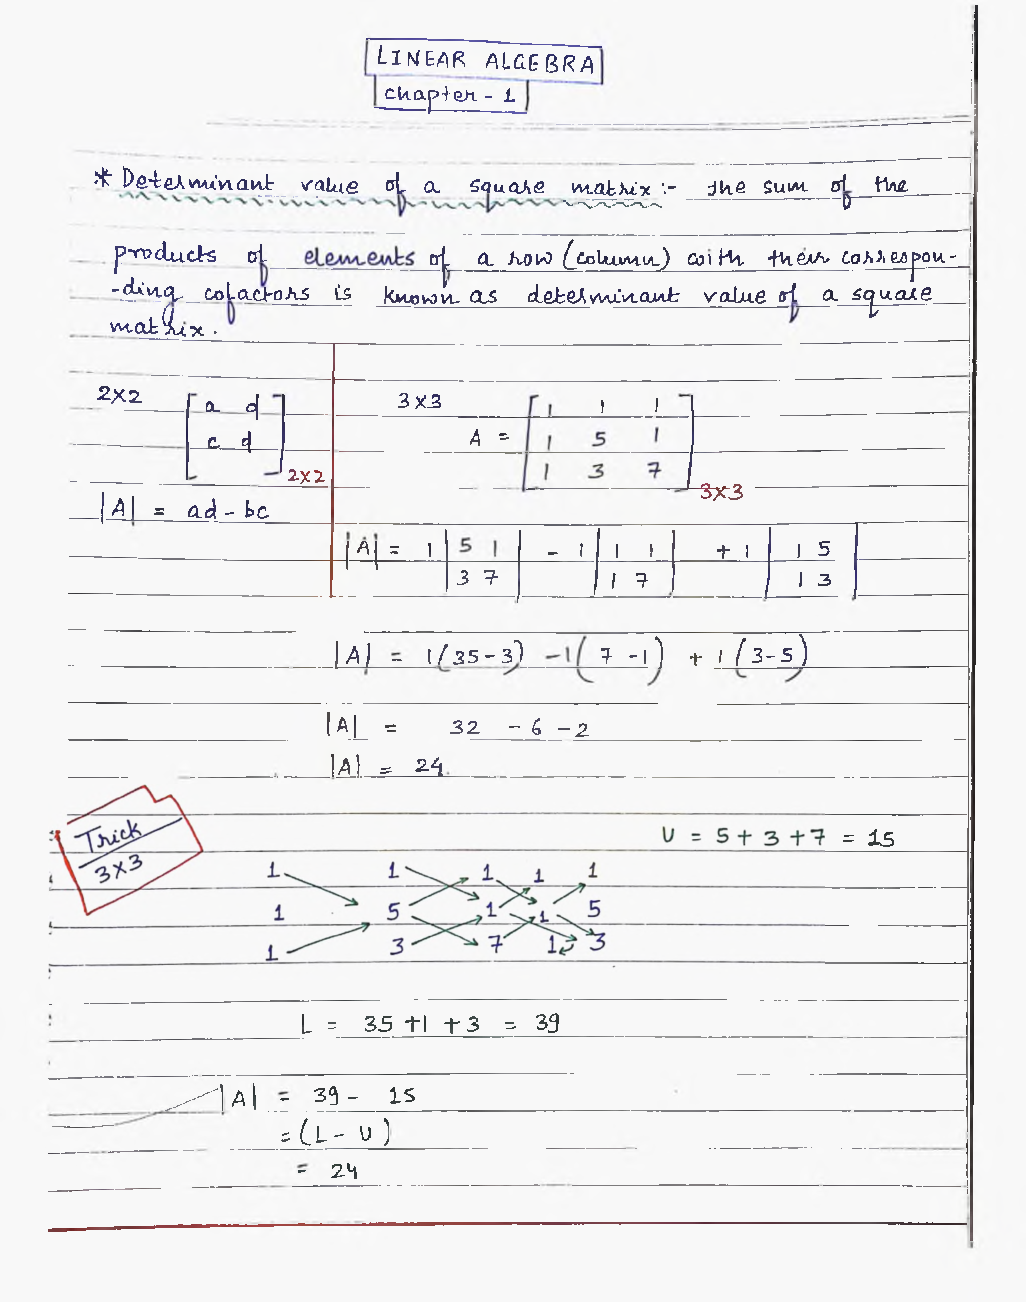 LINEAR ALGEBRA
chapter - 1
* Determinant value of a square matrix :- The sum of the
products of elements of a row (column) with their correspon-
-ding cofactors is known as determinant value of a square
matrix.
2×2
[a d
c d] 2×2
|A| = ad - bc
3×3
A = [1 1 1
1 5 1
1 3 7] 3×3
|A| = 1 |5 1| - 1 |1 1| + 1 |1 5|
|3 7| |1 7| |1 3|
|A| = 1(35-3) -1(7-1) + 1(3-5)
|A| = 32 - 6 - 2
|A| = 24.
Trick
3×3
U = 5 + 3 + 7 = 15
1 1 1 1 1
1 5 1 1 5
1 3 7 1 3
L = 35 + 1 + 3 = 39
|A| = 39 - 15
= (L - U)
= 24